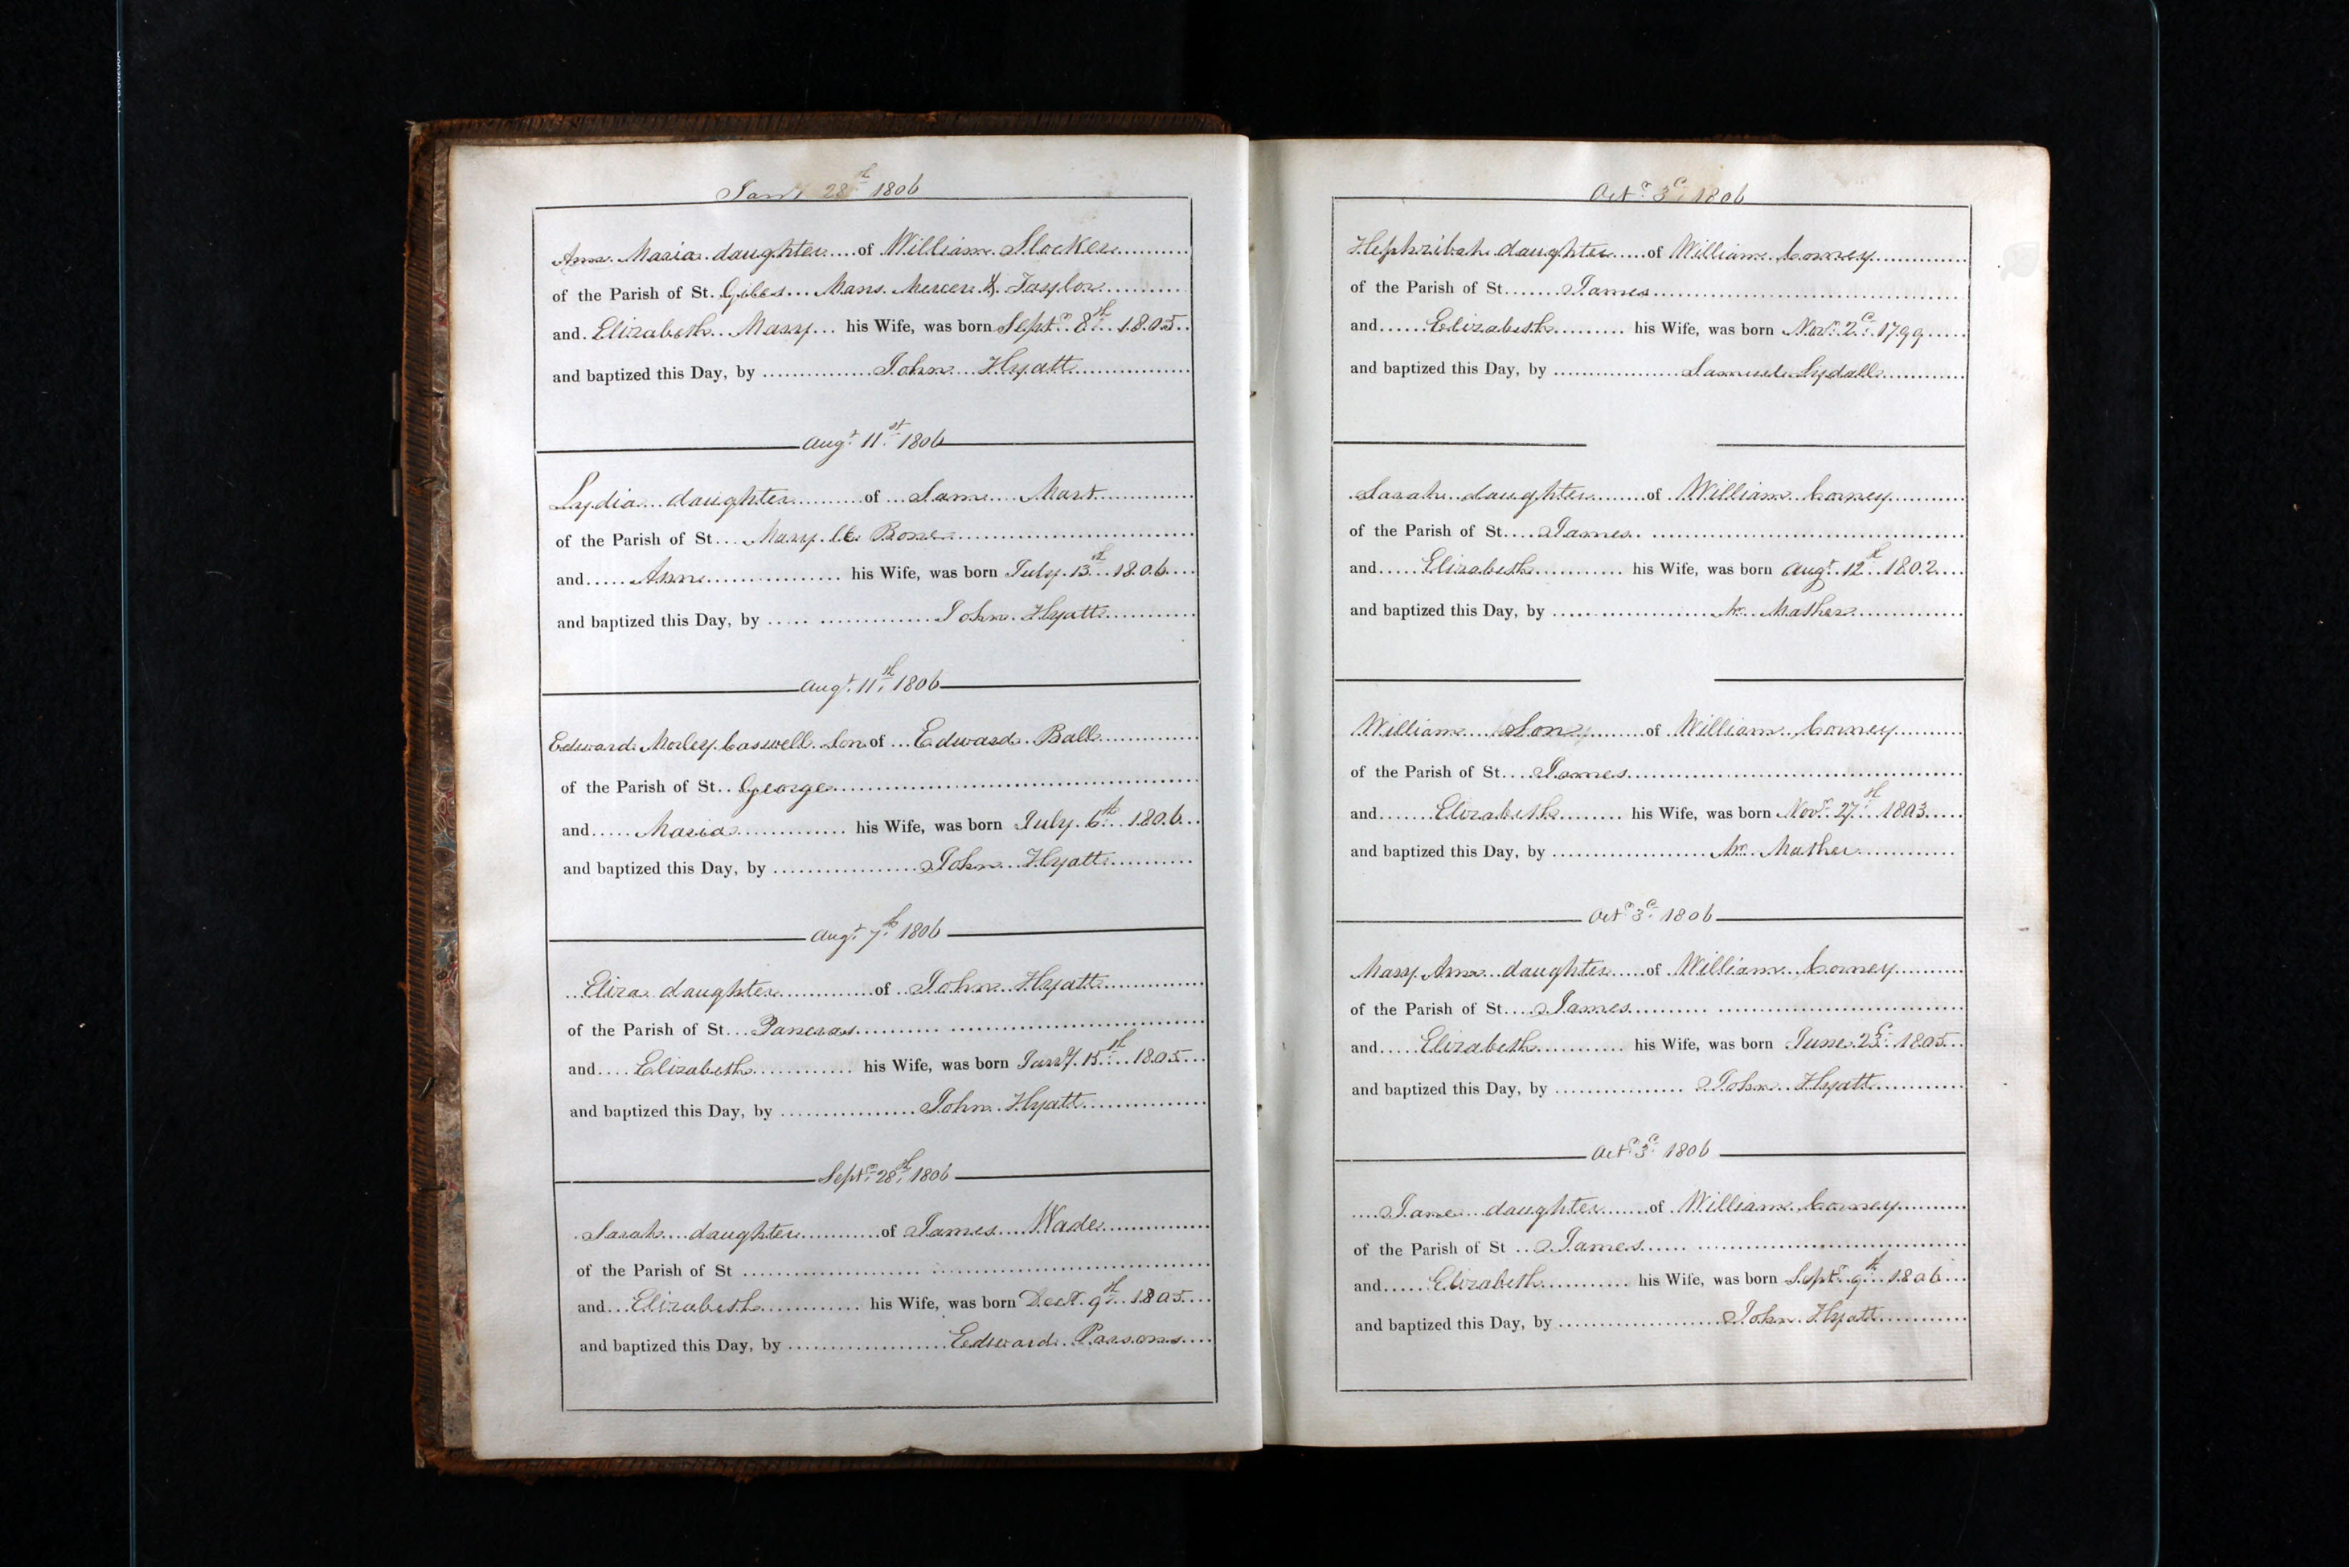 Jany 28th 1806
Ann Maria daughter of William Slocker
of the Parish of St. Giles Mans Mercer & Taylor
and Elizabeth Mary his Wife, was born Septr 8th 1805
and baptized this Day, by John Hyatt
Augt 11th 1806
Lydia daughter of Saml Mart
of the Parish of St Mary le Bone
and Anne his Wife, was born July 13th 1806
and baptized this Day, by John Hyatt
Augt 11th 1806
Edward Morley Caswell Son of Edward Ball
of the Parish of St George
and Maria his Wife, was born July 6th 1806
and baptized this Day, by John Hyatt
Augt 7th 1806
Eliza daughter of John Hyatt
of the Parish of St Pancras
and Elizabeth his Wife, was born Jany 15th 1805
and baptized this Day, by John Hyatt
Septr 28th 1806
Sarah daughter of James Wade
of the Parish of St
and Elizabeth his Wife, was born Decr 9th 1805
and baptized this Day, by Edward Parsons
Octr 3d 1806
Hephzibah daughter of William Corney
of the Parish of St James
and Elizabeth his Wife, was born Novr 2d 1799
and baptized this Day, by Samuel Lydall
Sarah daughter of William Corney
of the Parish of St James
and Elizabeth his Wife, was born Augt 12th 1802
and baptized this Day, by Mr Mather
William Son of William Corney
of the Parish of St James
and Elizabeth his Wife, was born Novr 27th 1803
and baptized this Day, by Mr Mather
Octr 3d 1806
Mary Ann daughter of William Corney
of the Parish of St James
and Elizabeth his Wife, was born June 23d 1805
and baptized this Day, by John Hyatt
Octr 3d 1806
Jane daughter of William Corney
of the Parish of St James
and Elizabeth his Wife, was born Septr 9th 1806
and baptized this Day, by John Hyatt